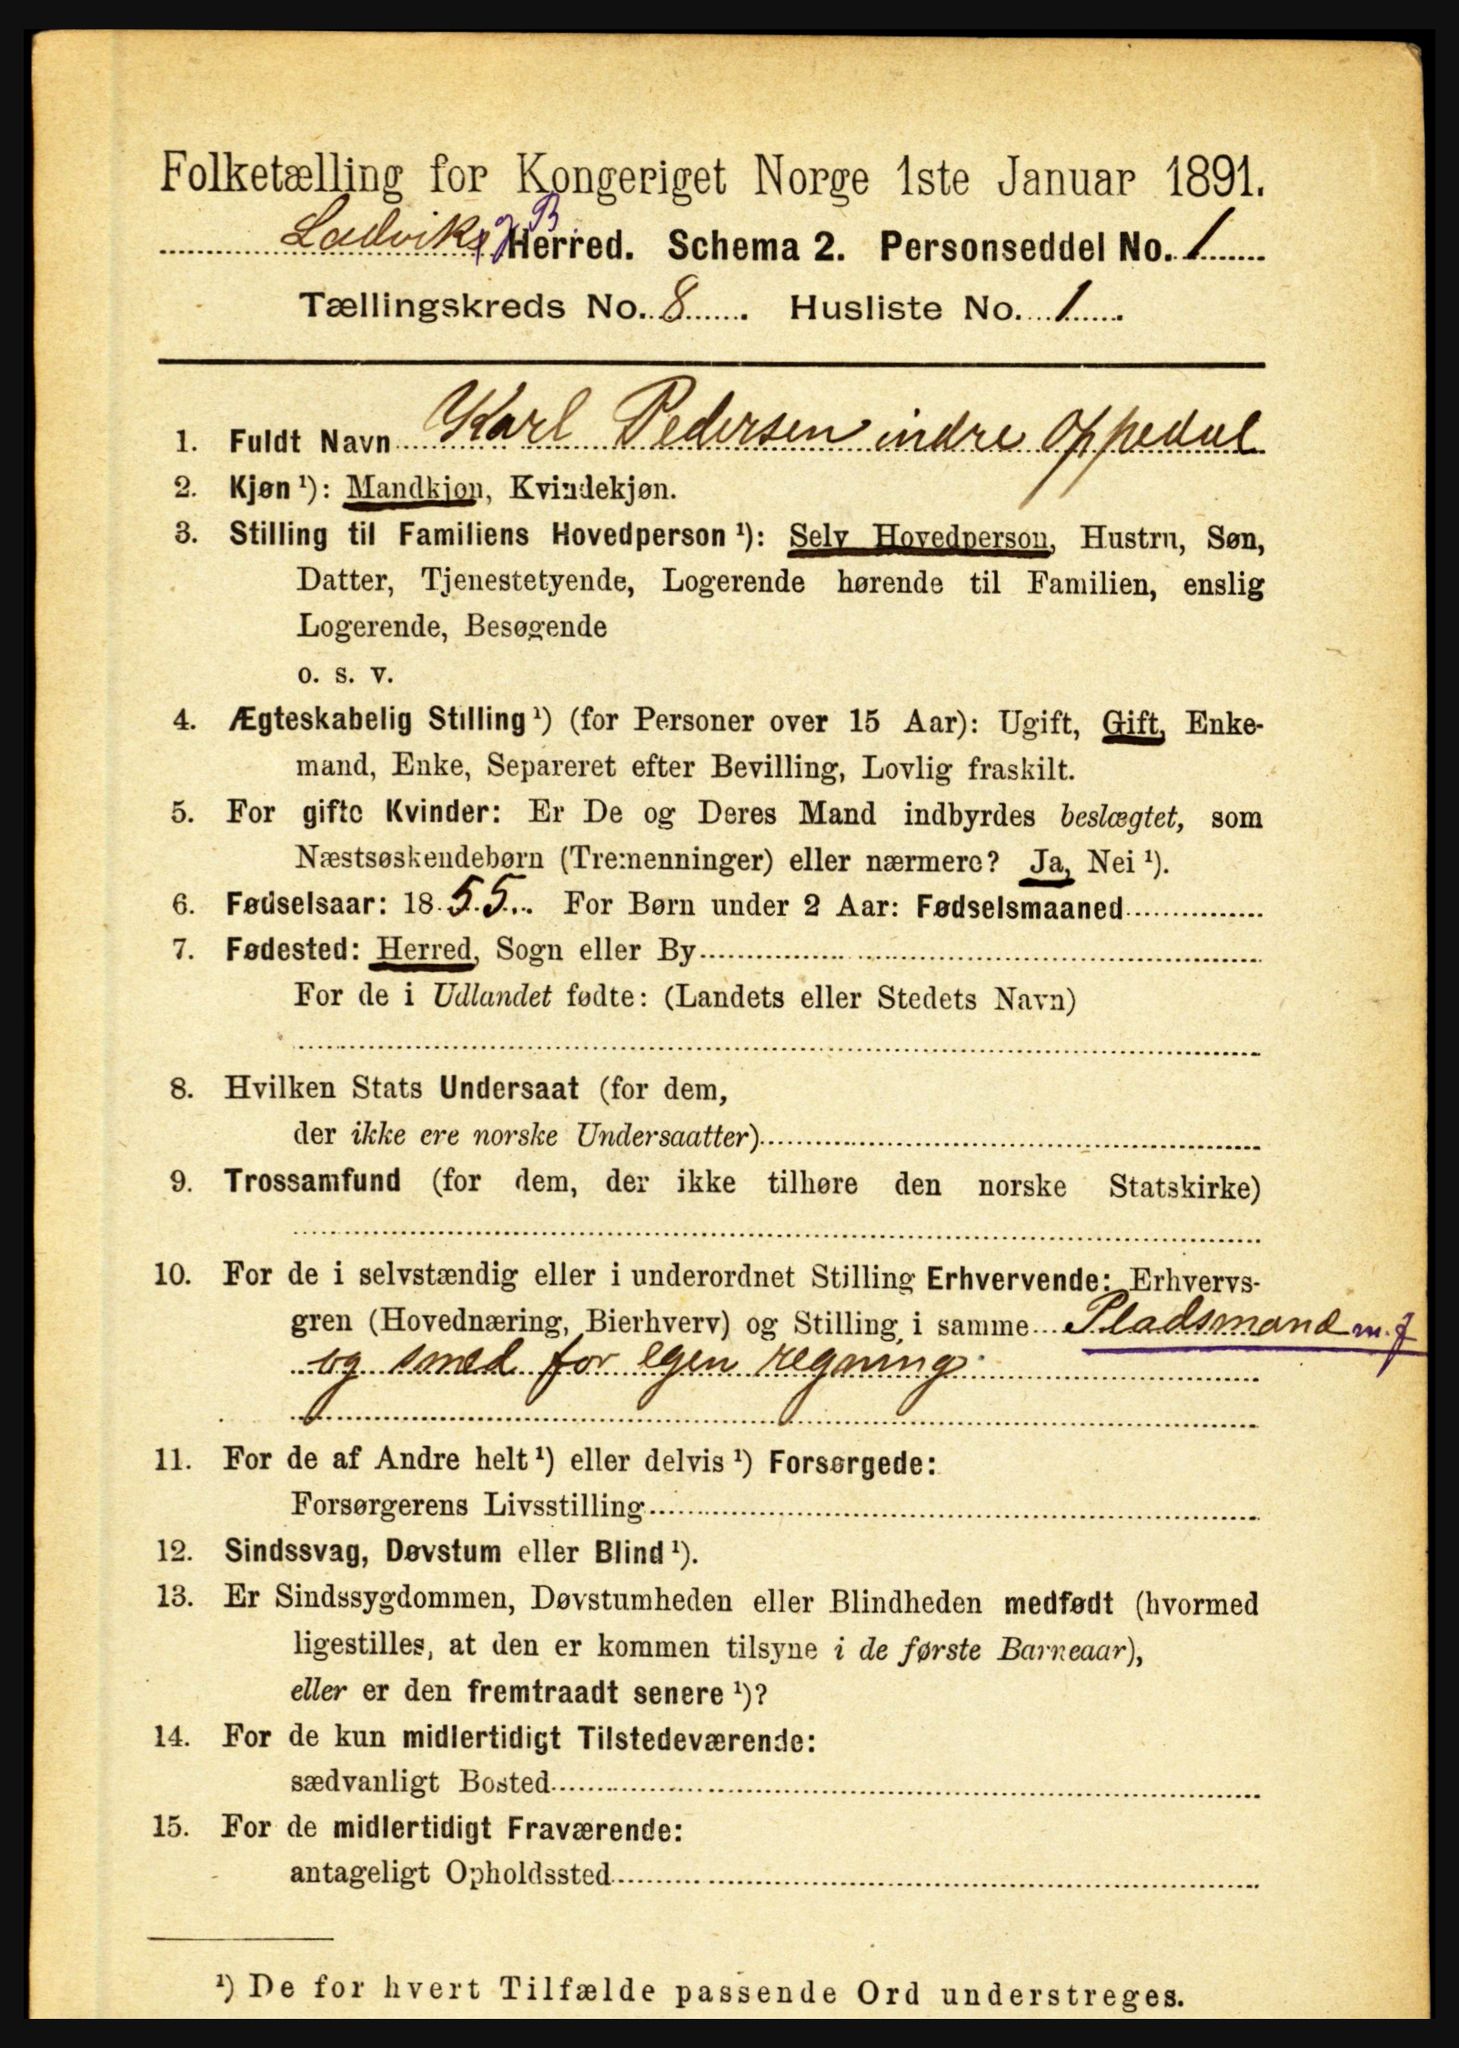 Folketælling for Kongeriget Norge 1ste Januar 1891.
Ladviks og B Herred. Schema 2. Personseddel No. 1
Tællingskreds No. 8 . Husliste No. 1 .
1. Fuldt Navn Karl Pedersen indre Oppedal
2. Kjøn ¹): Mandkjøn, Kvindekjøn.
3. Stilling til Familiens Hovedperson ¹): Selv Hovedperson, Hustru, Søn,
Datter, Tjenestetyende, Logerende hørende til Familien, enslig
Logerende, Besøgende
o. s. v.
4. Ægteskabelig Stilling ¹) (for Personer over 15 Aar): Ugift, Gift, Enke-
mand, Enke, Separeret efter Bevilling, Lovlig fraskilt.
5. For gifte Kvinder: Er De og Deres Mand indbyrdes beslægtet, som
Næstsøskendebørn (Tremenninger) eller nærmere? Ja, Nei ¹).
6. Fødselsaar: 1855. For Børn under 2 Aar: Fødselsmaaned
7. Fødested: Herred, Sogn eller By
For de i Udlandet fødte: (Landets eller Stedets Navn)
8. Hvilken Stats Undersaat (for dem,
der ikke ere norske Undersaatter)
9. Trossamfund (for dem, der ikke tilhøre den norske Statskirke)
10. For de i selvstændig eller i underordnet Stilling Erhvervende: Erhvervs-
gren (Hovednæring, Bierhverv) og Stilling i samme Pladsmand m. j
og smed for egen regning
11. For de af Andre helt ¹) eller delvis ¹) Forsørgede:
Forsørgerens Livsstilling
12. Sindssvag, Døvstum eller Blind ¹).
13. Er Sindssygdommen, Døvstumheden eller Blindheden medfødt (hvormed
ligestilles, at den er kommen tilsyne i de første Barneaar),
eller er den fremtraadt senere ¹)?
14. For de kun midlertidigt Tilstedeværende:
sædvanligt Bosted
15. For de midlertidigt Fraværende:
antageligt Opholdssted
¹) De for hvert Tilfælde passende Ord understreges.